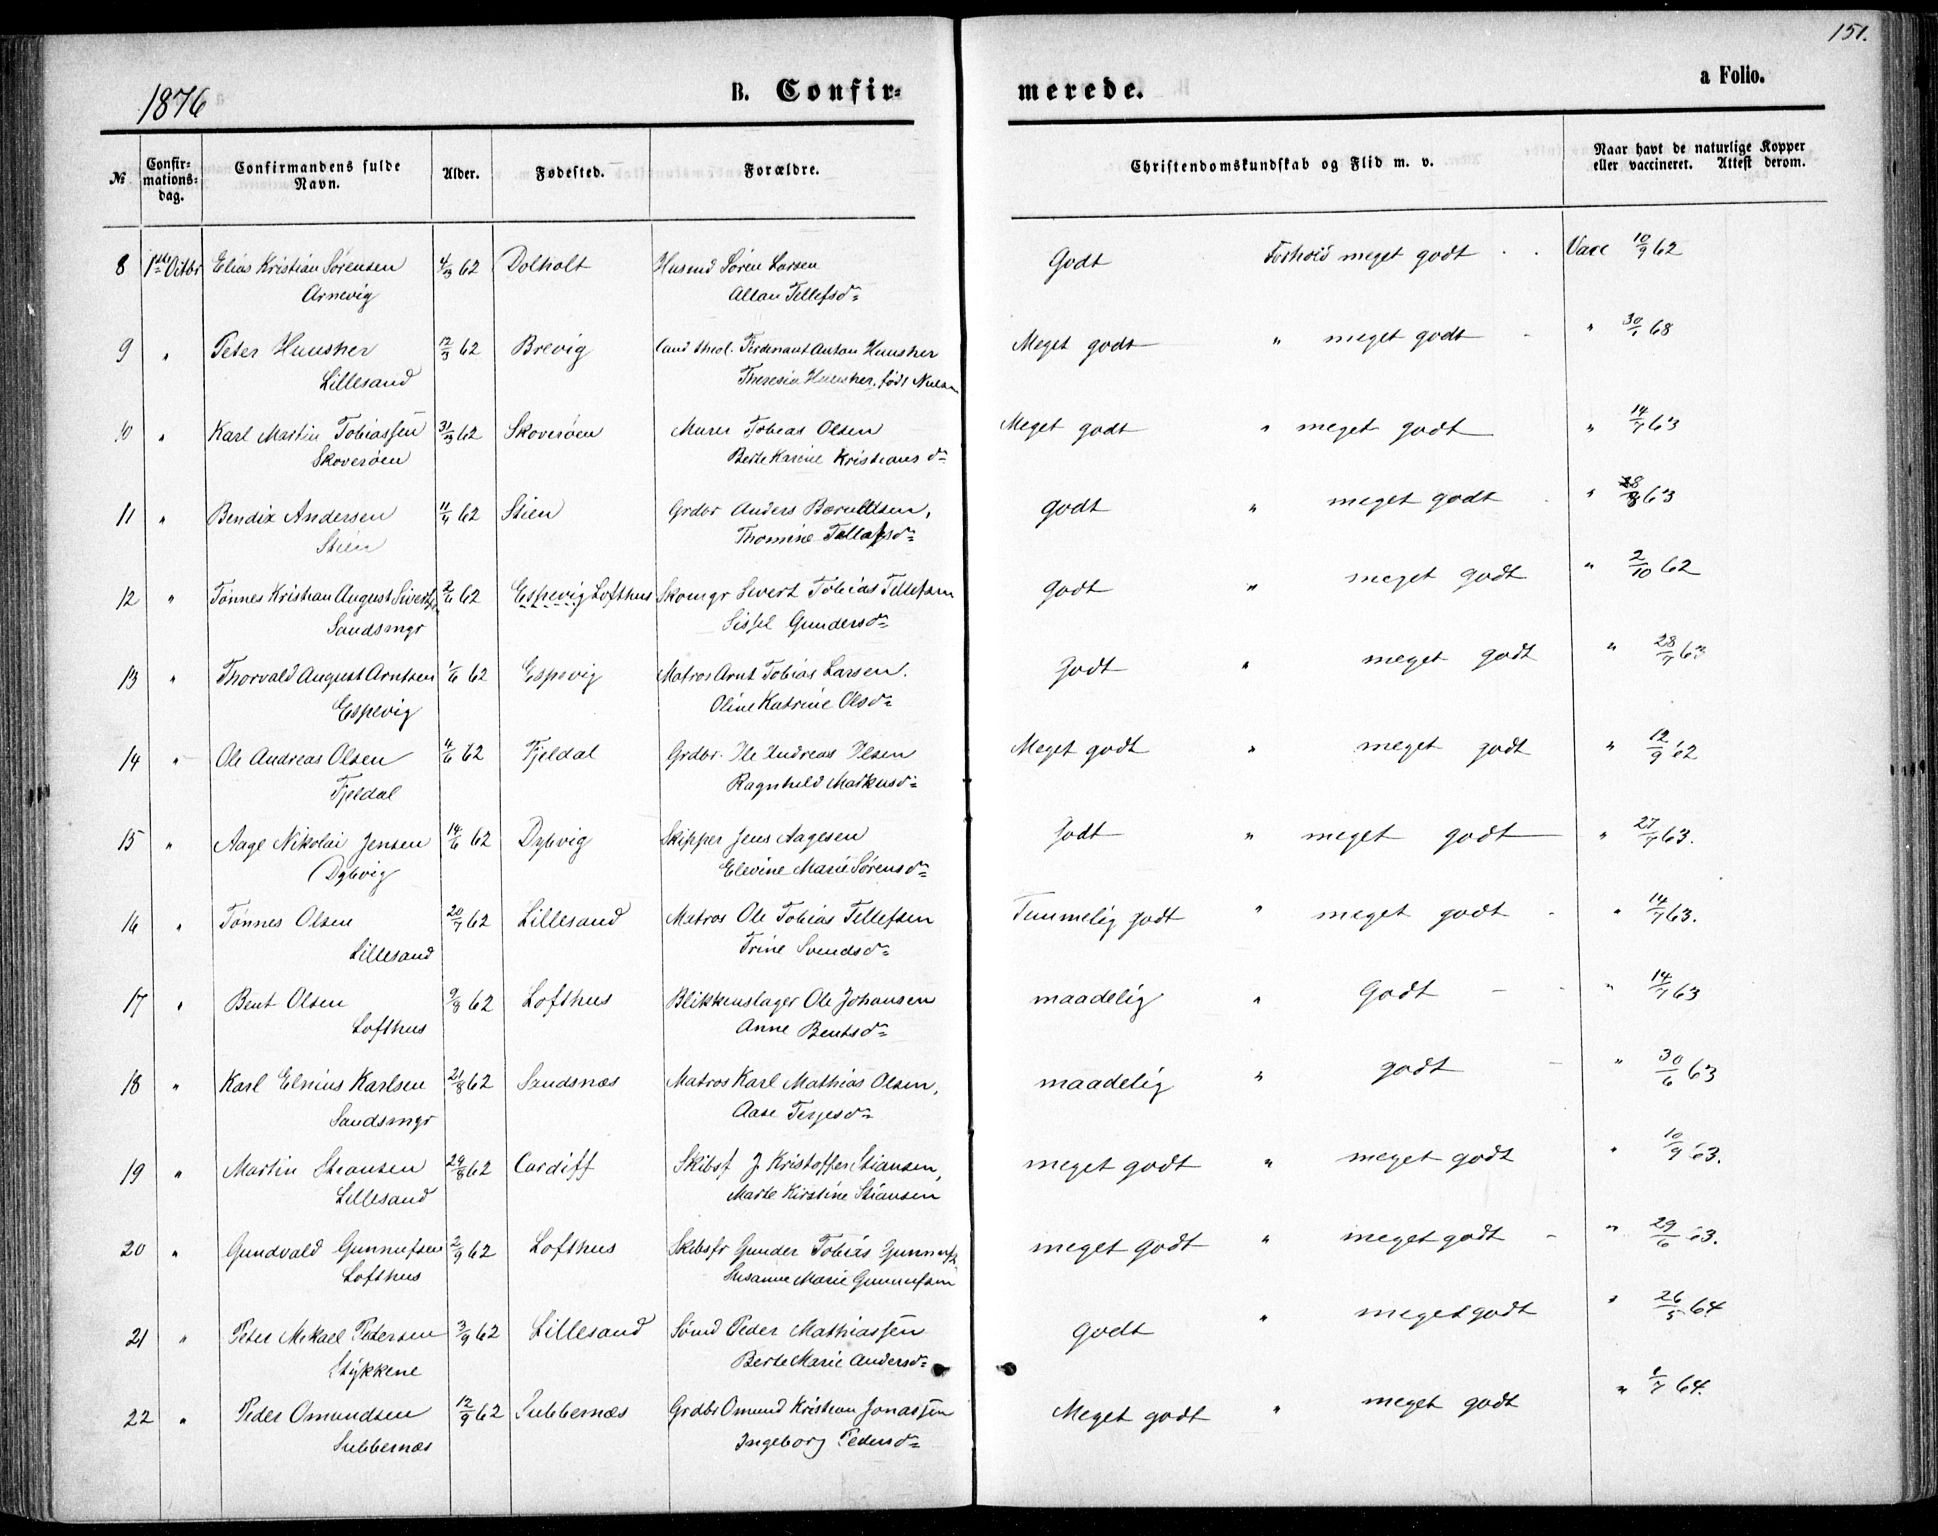 151.
1876
B. Confir-
merede.
a Folio.
№
Confir-
mations-
dag.
Confirmandens fulde
Navn.
Alder.
Fødested.
Forældre.
Christendomskundskab og Flid m. v.
Naar havt de naturlige Kopper
eller vaccineret. Attest derom.
8 1ste Octbr Elias Kristian Sørensen 4/3 62 Dolholt Husmd Søren Larsen Godt Forhold meget godt Vacc 10/9 62
Arnevig Tellefsd=
9 " Peter Huusher 12/3 62 Brevig Cand theol. Ferdenant Anton Huusher Meget godt " meget godt " 30/1 68
Lillesand Theresia Huusher, født
10 " Karl Martin Tobiassen 31/3 62 Skoverøen Murer Tobias Olsen Meget godt " meget godt " 14/7 63
Skoverøen Berte Karine Kristians d=
11 " Bendix Andersen 11/4 62 Stien Grdbr Anders Berntsen, godt " meget godt " 63
Stien Thomine Tellefsd=
12 " Tønnes Kristian August Siverts 2/6 62 Espevig Lofthus Skomgr Sivert Tobias Tellefsen godt " meget godt " 2/10 62
Sandsmgr Sissel Gundersd=
13 " Thorvald August Arntsen 1/6 62 Espevig Matros Arnt Tobias Larsen. Godt " meget godt " 28/7 63
Espevig Oline Katrine Olsd=
14 " Ole Andreas Olsen 4/6 62 Fjeldal Grdbr. Ole Andreas Olsen Meget godt " meget godt " 12/9 62
Fjeldal Ragnhild Markusd=
15 " Aage Nikolai Jensen 14/6 62 Dybvig Skipper Jens Aagesen Godt " meget godt " 27/7 63.
Dybvig Elevine Marie Sørensd=
16 " Tønnes Olsen 20/7 62 Lillesand Matros Ole Tobias Tellefsen Temmelig godt " meget godt " 14/7 63.
Lillesand Trine Svendsd=
17 " Bent Olsen 9/8 62 Lofthus Blikkenslager Ole Johansen maadelig " Godt " 14/7 63
Lofthus Anne Bentsd=
18 " Karl Elnius Karlsen 21/8 62 Sandsnæs Matros Karl Mathias Olsen, maadelig " godt " 30/6 63
Sandsmgr Aase Terjesd=
19 " Martin Stiansen 29/8 62 Cardiff Skibsf J Kristoffer Stiansen, meget godt " meget godt " 10/9 63.
Lillesand Marte Kirstine Stiansen
20 " Gundvald Gunnufsen 2/9 62 Lofthus Skibsfr Gunder Tobias Gunnufs meget godt " meget godt " 29/6 63.
Lofthus Susanne Marie Gunnufsen
21 " Peter Mekael Petersen 3/9 62 Lillesand Sømd Peder Mathiassen Godt " meget godt " 26/5 64
Stykkene Berte Marie Andersd=
22 " Peder Omundsen 12/9 62 Tubbernæs Grdbr Omund Kristian Jonassen Meget godt " meget godt " 1/7 64.
Tubbernæs Ingeborg Pedersd=